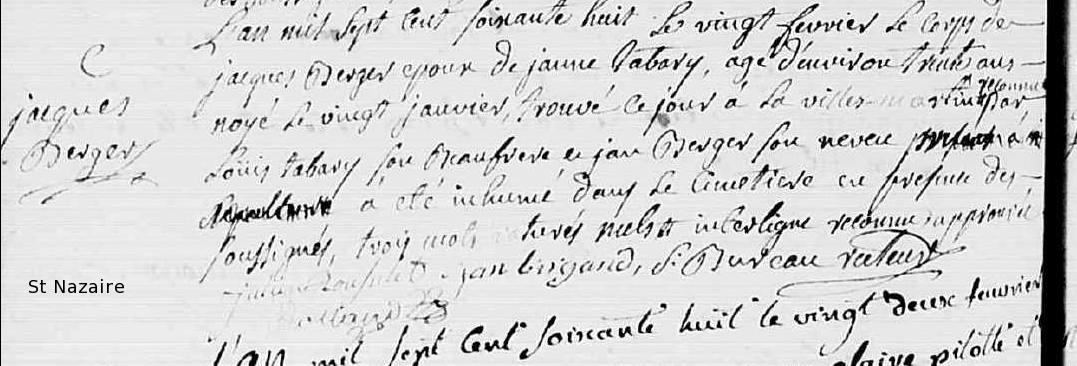 C
jacques
Berger
L'an mil sept cent soixante huit le vingt fevrier le corps de
jacques Berger epoux de janne tabary, agé d'environ trente ans
noyé le vingt janvier, trouvé ce jour à la ville martin reconnu par
Louis tabary son Beaufrere et jan Berger son neveu
sepulture a été inhumé dans le cimetiere en presence des
soussignés, trois mots nuls interligne reconnu approuvé
jan brigand, S. Bureau recteur
St Nazaire
L'an mil sept cent soixante huit le vingt deux fevrier
claire pilotte et